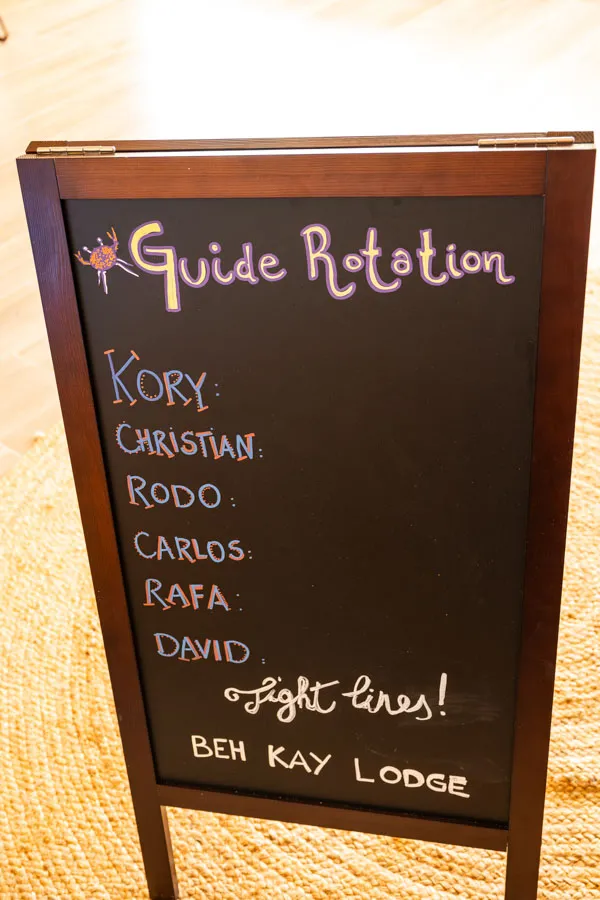 Guide Rotation
KORY:
CHRISTIAN:
RODO:
CARLOS:
RAFA:
DAVID:
Tight lines!
BEH KAY LODGE